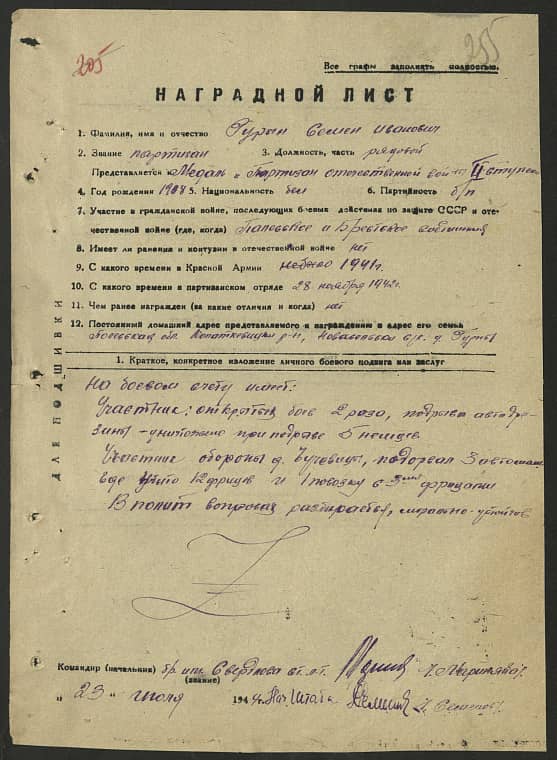 205
255
Все графы заполнять полностью.
НАГРАДНОЙ ЛИСТ
1. Фамилия, имя и отчество Гурин Семен Иванович
2. Звание партизан 3. Должность, часть рядовой
Представляется Медаль "Партизан отечественной войны II ступени
4. Год рождения 1908 5. Национальность бел 6. Партийность б/п
7. Участие в гражданской войне, последующих боевых действиях по защите СССР и оте-
чественной войне (где, когда)
8. Имеет ли ранения и контузии в отечественной войне нет
9. С какого времени в Красной Армии 1941г.
10. С какого времени в партизанском отряде 28 ноября 1942г.
11. Чем ранее награжден (за какие отличия и когда) нет
12. Постоянный домашний адрес представляемого к награждению и адрес его семьи
обл. р-н, с/с. д.
ДЛЯ ПОДШИВКИ
1. Краткое, конкретное изложение личного боевого подвига или заслуг
На боевом счету имеет:
Участник: открытых боев 2 раза, подрыва автодре-
зины - уничтожено при подрыве 5 немцев
Участник обороны д. подорвал 3 автомаш
где убито 12 фрицев и 1 повозку с 3мя фрицами
В полит вопросах разбирается, морально-устойчив
Командир (начальник) бр. им. Свердлова
(звание)
„ 23 " июля 1944г. Нач. Штаба